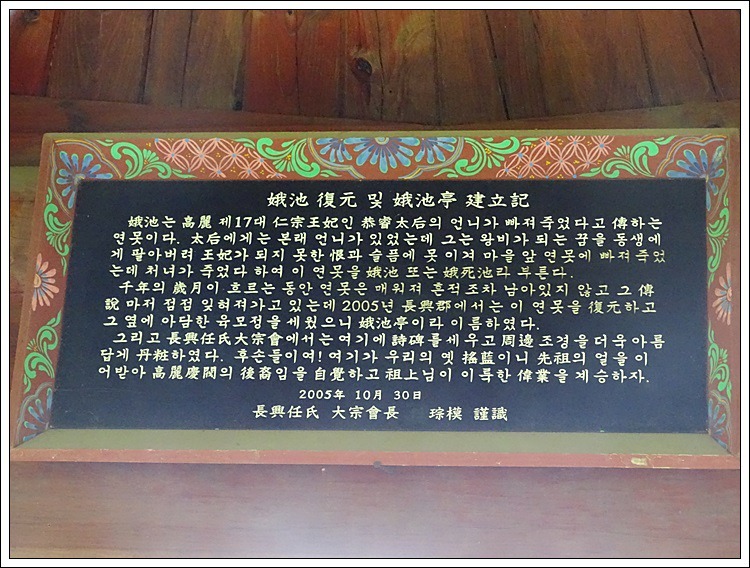 娥池 復元 및 娥池亭 建立記
娥池는 高麗 제17대 仁宗王妃인 恭睿太后의 언니가 빠져죽었다고 傳하는
연못이다. 太后에게는 본래 언니가 있었는데 그는 왕비가 되는 꿈을 동생에
게 팔아버려 王妃가 되지 못한 恨과 슬픔에 못 이겨 마을 앞 연못에 빠져죽었
는데 처녀가 죽었다 하여 이 연못을 娥池 또는 娥死池라 부른다.
千年의 歲月이 흐르는 동안 연못은 매워져 흔적조차 남아있지 않고 그 傳
說 마저 점점 잊혀져가고 있는데 2005년 長興郡에서는 이 연못을 復元하고
그 옆에 아담한 육모정을 세웠으니 娥池亭이라 이름하였다.
그리고 長興任氏大宗會에서는 여기에 詩碑를 세우고 周邊 조경을 더욱 아름
답게 丹粧하였다. 후손들이여! 여기가 우리의 옛 搖藍이니 先祖의 얼을 이
어받아 高麗慶閥의 後裔임을 自覺하고 祖上님이 이룩한 偉業을 계승하자.
2005年 10月 30日
長興任氏 大宗會長 琮模 謹識